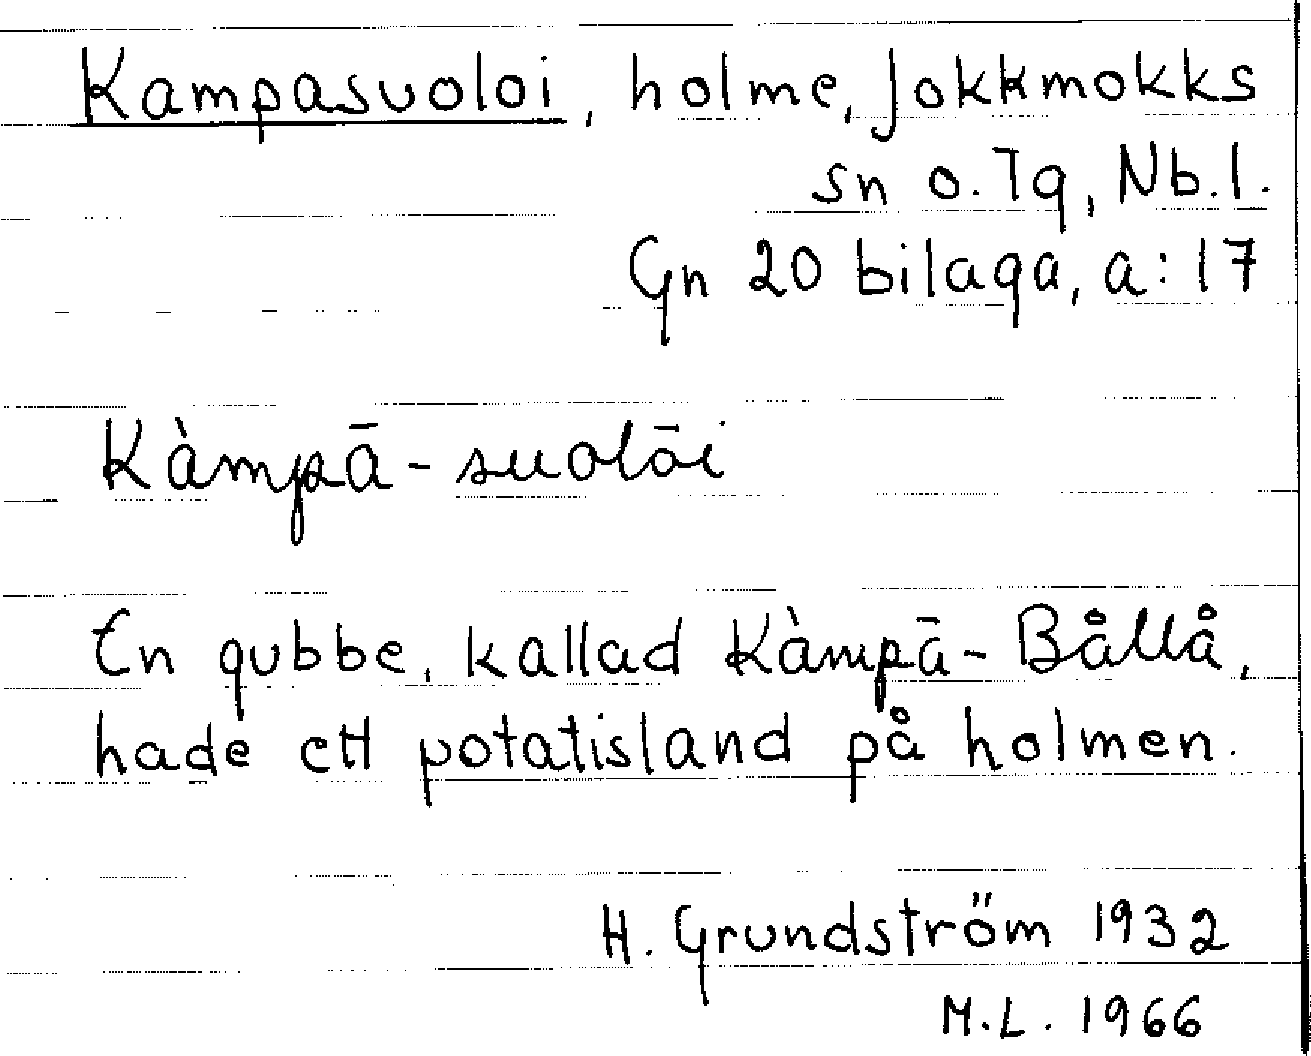 Kampasuoloi, holme, Jokkmokks
sn o. Tg, Nb.l.
Gn 20 bilaga, a:17
Kàmpā-suolōi
En gubbe, kallad Kàmpā-Bållå,
hade ett potatisland på holmen.
H. Grundström 1932
M.L. 1966